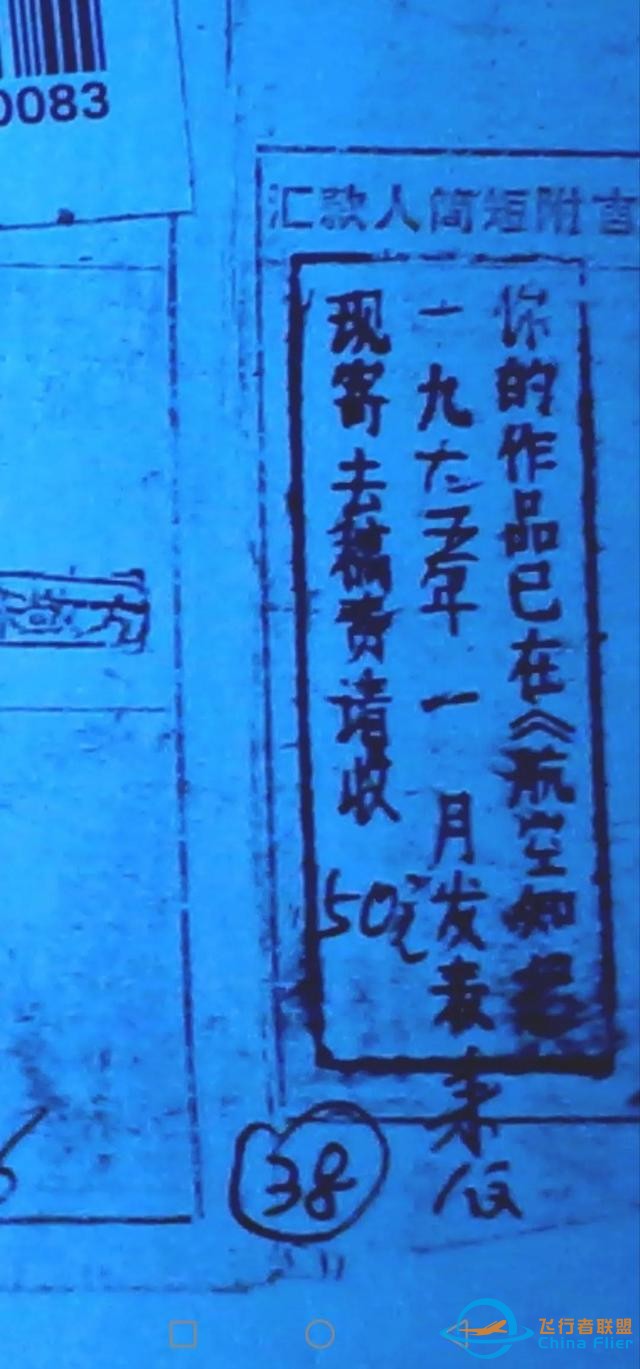 0083
汇款人简短附言
你的作品已在《航空知识
一九六五年一月发表
现寄去稿费请收
50元
38
飞行者联盟
China Flier